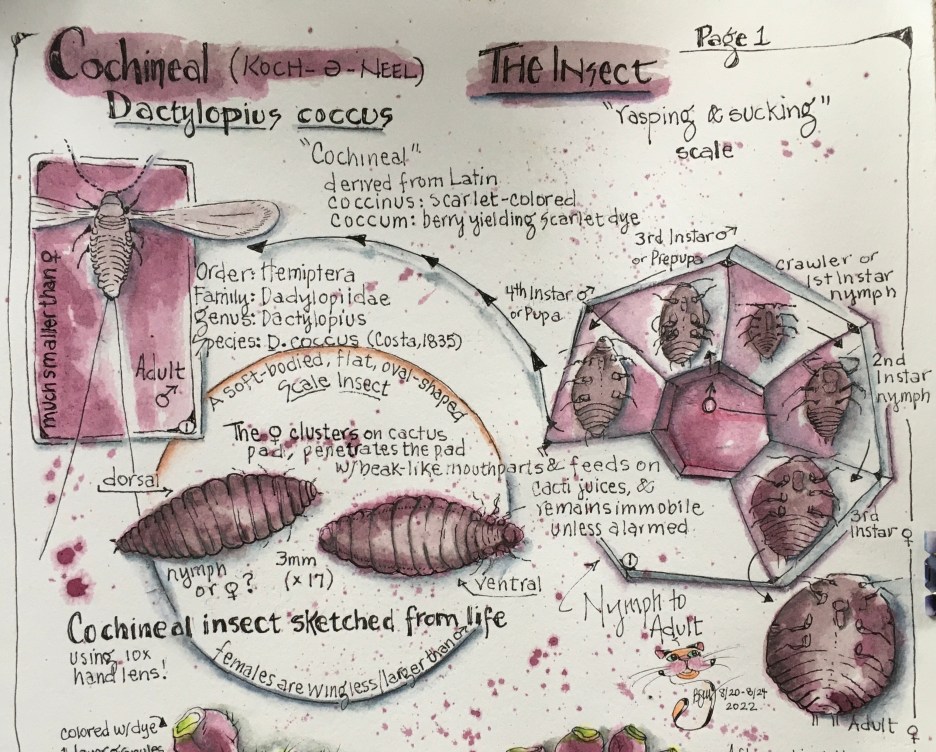 Page 1
Cochineal (KOCH-ə-NEEL)
THE INsect
Dactylopius coccus
"rasping & sucking"
scale
"Cochineal"
derived from Latin
coccinus: scarlet-colored
coccum: berry yielding scarlet dye
much smaller than ♀
Adult
♂
Order: Hemiptera
Family: Dadylopiidae
Genus: Dactylopius
Species: D. coccus (Costa, 1835)
3rd Instar ♂
or Prepupa
crawler or
1st Instar
nymph
4th Instar ♂
or Pupa
2nd
Instar
nymph
♂
3rd
Instar ♀
A soft-bodied, flat, oval-shaped
Scale Insect
The ♀ clusters on cactus
pad, penetrates the pad
w/beak-like mouthparts & feeds on
cacti juices, &
remains immobile
unless alarmed
dorsal
nymph
or ♀?
3mm
(x 17)
ventral
Nymph to
Adult
Cochineal insect sketched from life
using 10x
hand lens!
females are wingless/larger than ♂
8/20-8/24
2022
Adult ♀
colored w/dye